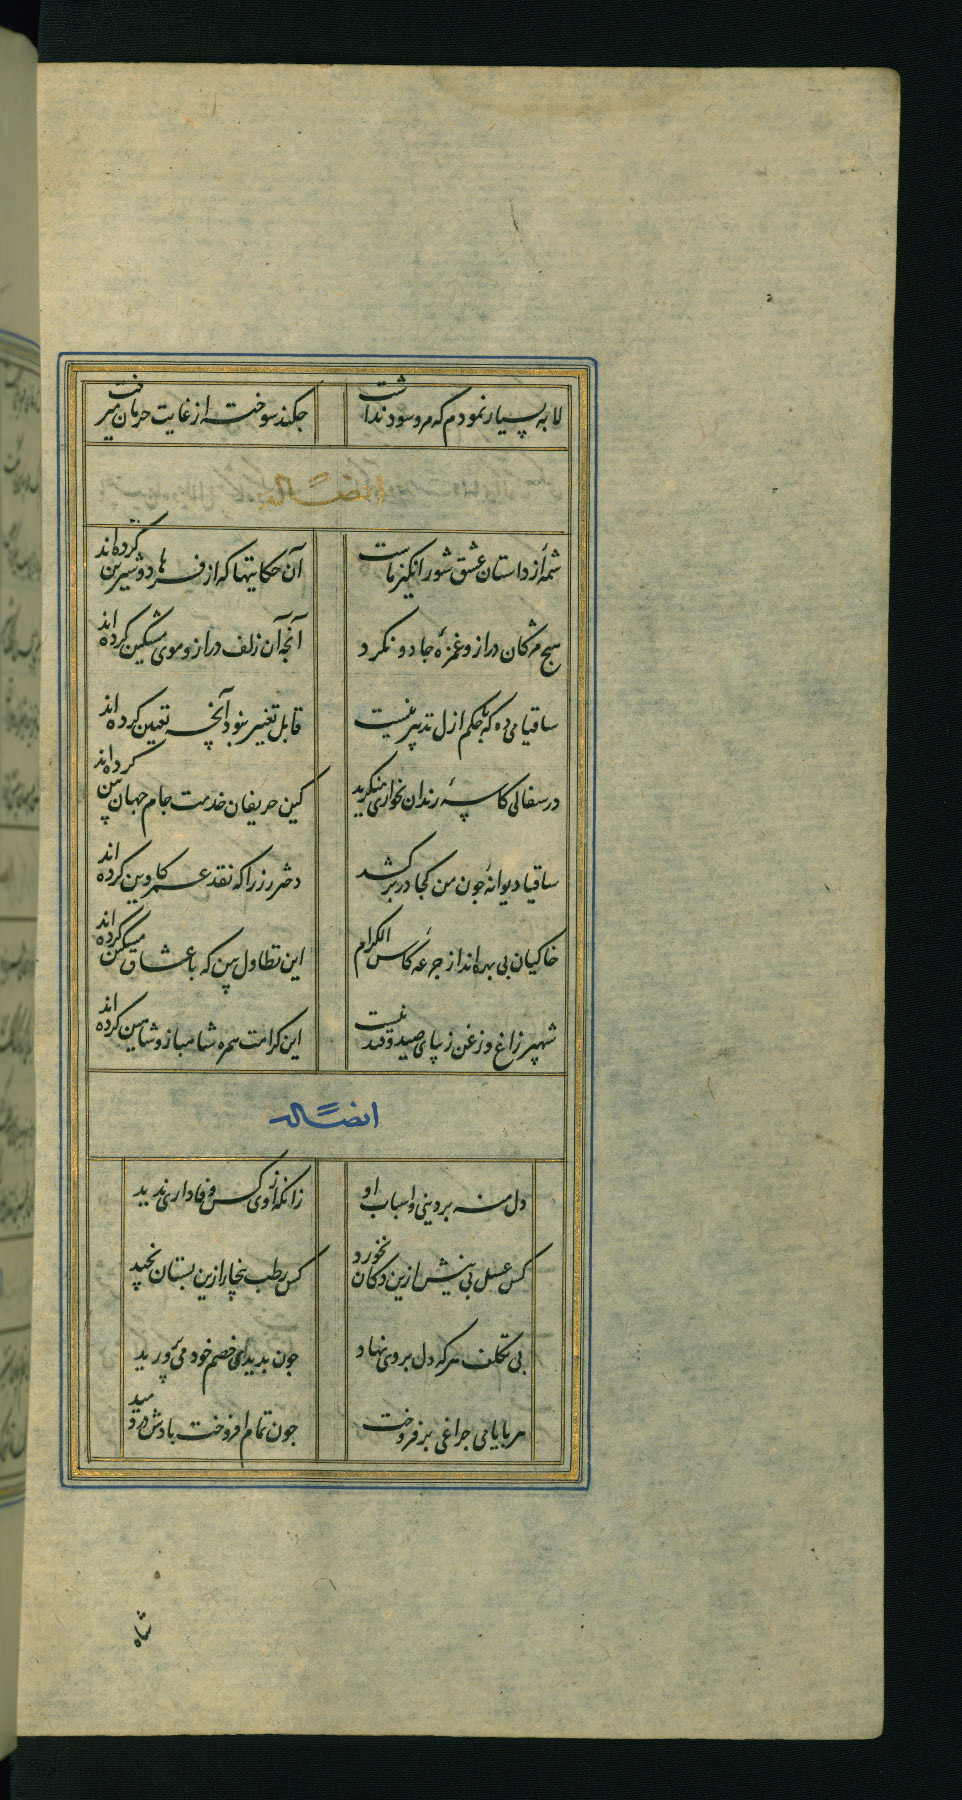 لابه بسیار نمودم که مرو سود نداشت
جکند سوخته از غایت حرمان میرفت
ایضا له
شمهٔ از داستان عشق شورانگیز ماست
آن حکایتها که از فرهاد و شیرین کرده‌اند
هیچ مژگان دراز و غمزهٔ جادو نکرد
آنجه آن زلف دراز و موی مشکین کرده‌اند
ساقیا می ده که با حکم ازل تدبیر نیست
قابل تغییر نبود آنچه تعیین کرده‌اند
در سفالی کاسهٔ رندان بخواری منکرید
کین حریفان خدمت جام جهان بین کرده‌اند
ساقیا دیوانهٔ جون من کجا در بر کشد
دختر رز را که نقد عقل کاوین کرده‌اند
خاکیان بی بهره‌اند از جرعهٔ کاس الکرام
این تطاول بین که با عشاق مسکین کرده‌اند
شهپر زاغ و زغن زیبای صید و قید نیست
این کرامت همره شاهباز و شاهین کرده‌اند
ایضا له
دل منه بر دینی و اسباب او
زانکه از وی کس وفاداری ندید
کس عسل بی نیش ازین دکان نخورد
کس رطب بیخار ازین بستان نچید
بی تکلف هر که دل بر وی نهاد
جون بدیدی خصم خود می پرورید
هر بایامی جراغی بر فروخت
جون تمام افروخت بادش در دمید
شاه